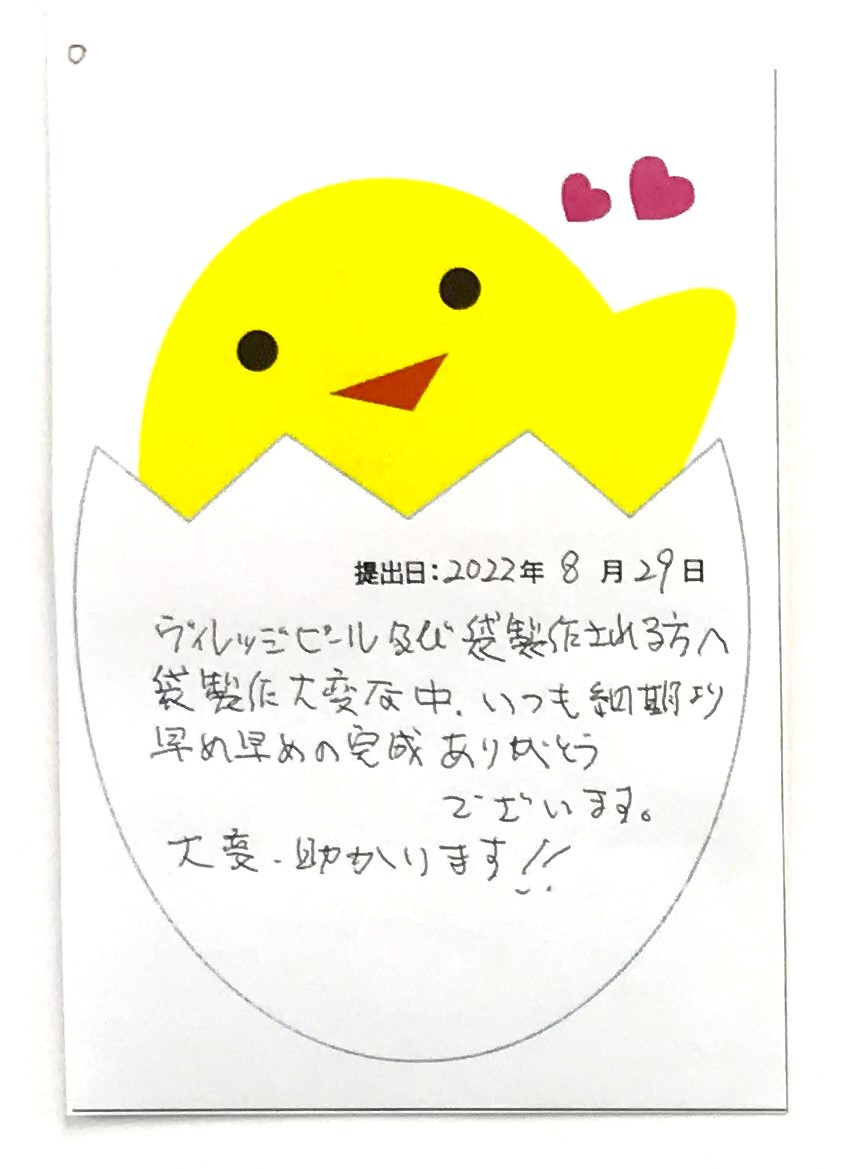 提出日：2022年 8 月 29 日
ヴィレッジビール及び袋製作される方へ
袋製作大変な中、いつも納期より
早め早めの完成 ありがとう
ございます。
大変、助かります!!